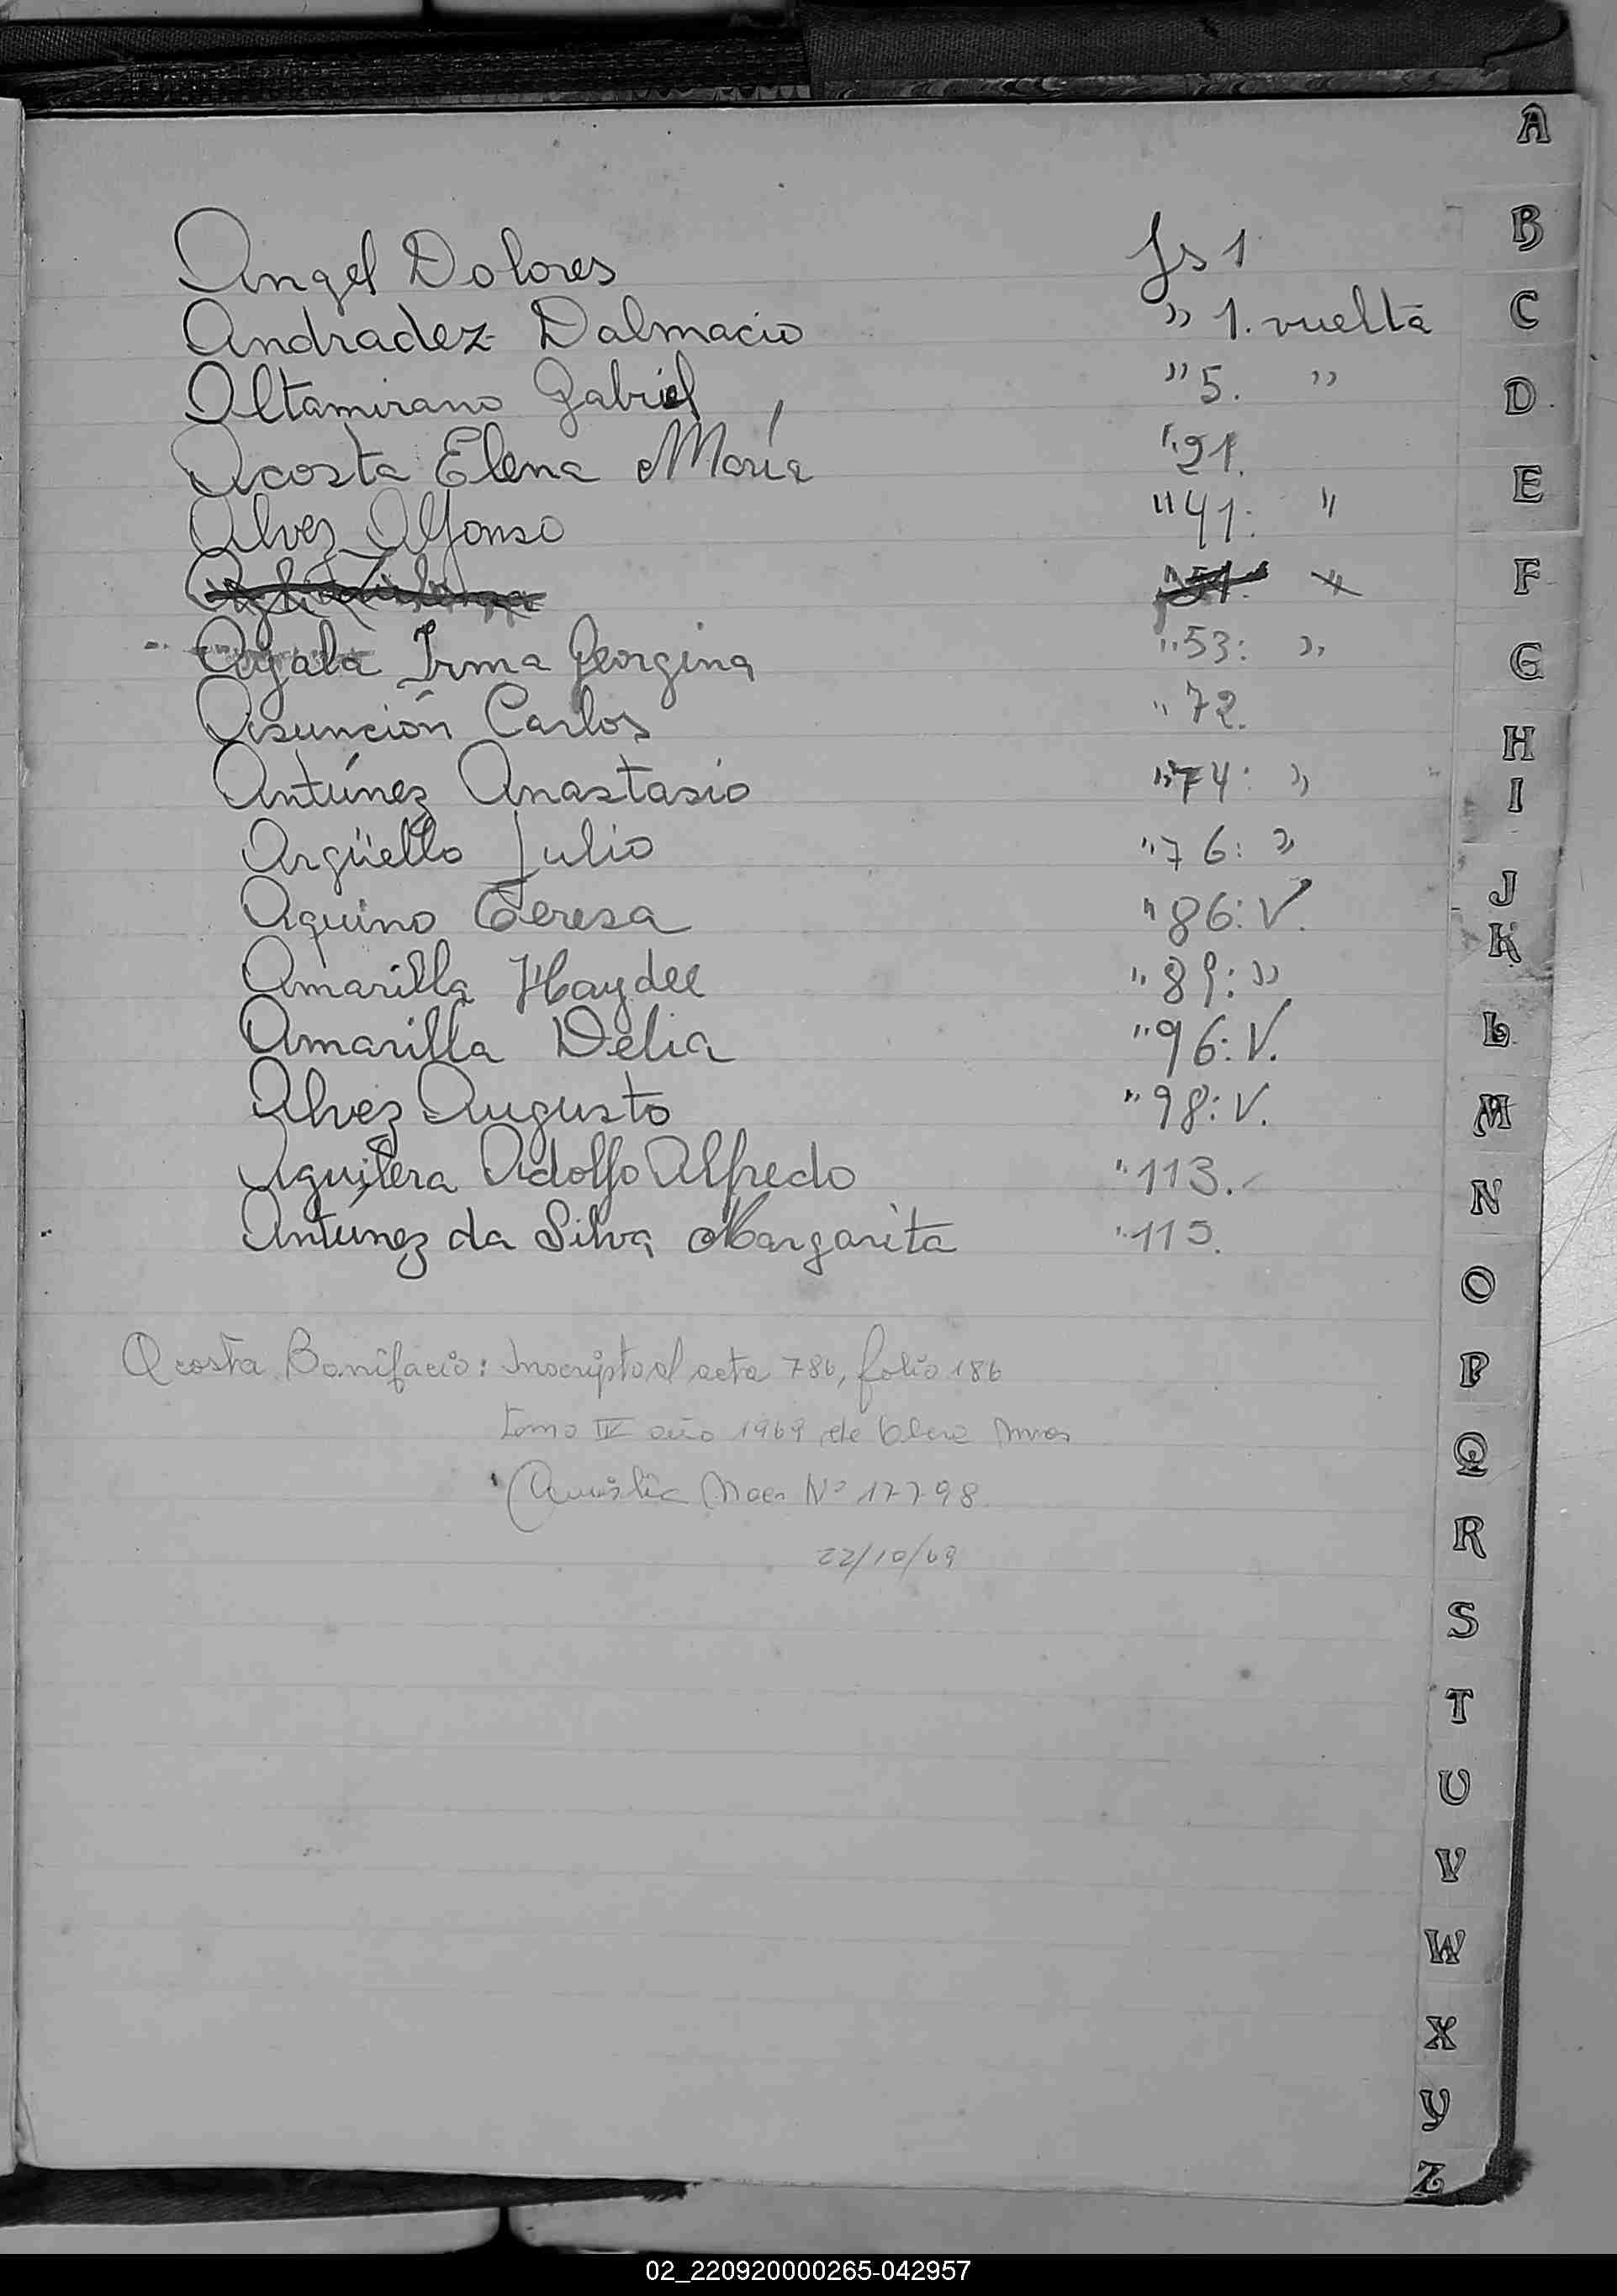 A
B
C
D
E
F
G
H
I
J
K
L
M
N
O
P
Q
R
S
T
U
V
W
X
Y
Z
Angel Dolores fs 1
Andradez Dalmacio " 1. vuelta
Altamirano Gabriel " 5. "
Acosta Elena María " 21.
Alvez Alfonso " 41: "
" 51. "
Ayala Irma Georgina " 53: "
Asunción Carlos " 72.
Antúnez Anastasio " 74: "
Argüello Julio " 76: "
Aquino Teresa " 86: V.
Amarilla Haydee " 89: "
Amarilla Delia " 96: V.
Alvez Augusto " 98: V.
Aguilera Adolfo Alfredo " 113.
Antúnez da Silva Margarita " 115.
Acosta Bonifacio: Inscripto al acta 786, folio 186
tomo IV año 1969 de
Nº 17798
22/10/69
02_220920000265-042957